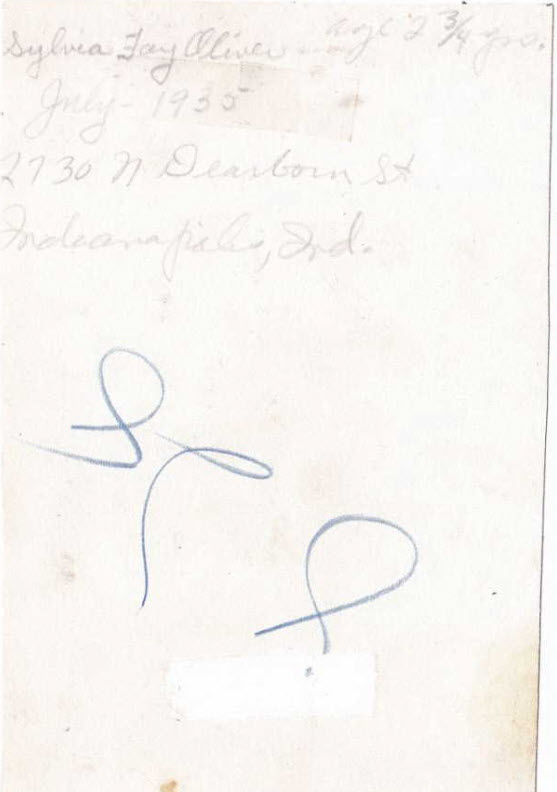 Sylvia Fay Oliver --- age 2 3/4 yrs.
July - 1935
2730 N Dearborn St
Indianapolis, Ind.